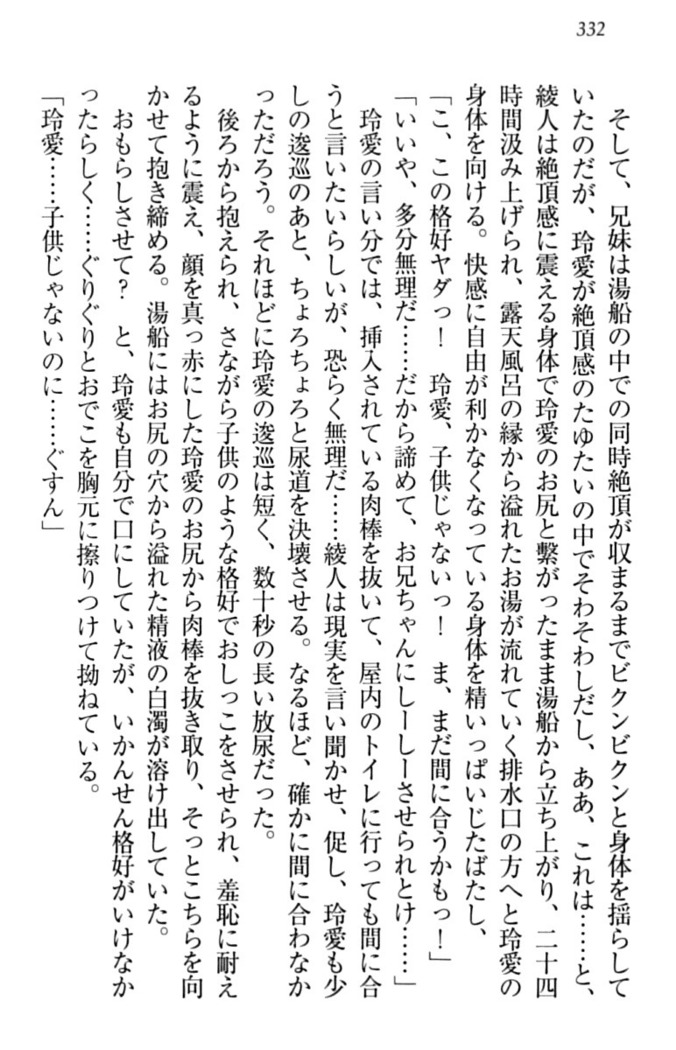 332
そして、兄妹は湯船の中での同時絶頂が収まるまでビクンビクンと身体を揺らして
いたのだが、玲愛が絶頂感のたゆたいの中でそわそわしだし、ああ、これは……と、
綾人は絶頂感に震える身体で玲愛のお尻と繋がったまま湯船から立ち上がり、二十四
時間汲み上げられ、露天風呂の縁から溢れたお湯が流れていく排水口の方へと玲愛の
身体を向ける。快感に自由が利かなくなっている身体を精いっぱいじたばたし、
「こ、この格好ヤダっ！　玲愛、子供じゃないっ！　ま、まだ間に合うかもっ！」
「いいや、多分無理だ……だから諦めて、お兄ちゃんにしーしーさせられとけ……」
玲愛の言い分では、挿入されている肉棒を抜いて、屋内のトイレに行っても間に合
うと言いたいらしいが、恐らく無理だ……綾人は現実を言い聞かせ、促し、玲愛も少
しの逡巡のあと、ちょろちょろと尿道を決壊させる。なるほど、確かに間に合わなか
っただろう。それほどに玲愛の逡巡は短く、数十秒の長い放尿だった。
後ろから抱えられ、さながら子供のような格好でおしっこをさせられ、羞恥に耐え
るように震え、顔を真っ赤にした玲愛のお尻から肉棒を抜き取り、そっとこちらを向
かせて抱き締める。湯船にはお尻の穴から溢れた精液の白濁が溶け出していた。
おもらしさせて？　と、玲愛も自分で口にしていたが、いかんせん格好がいけなか
ったらしく……ぐりぐりとおでこを胸元に擦りつけて拗ねている。
「玲愛……子供じゃないのに……ぐすん」